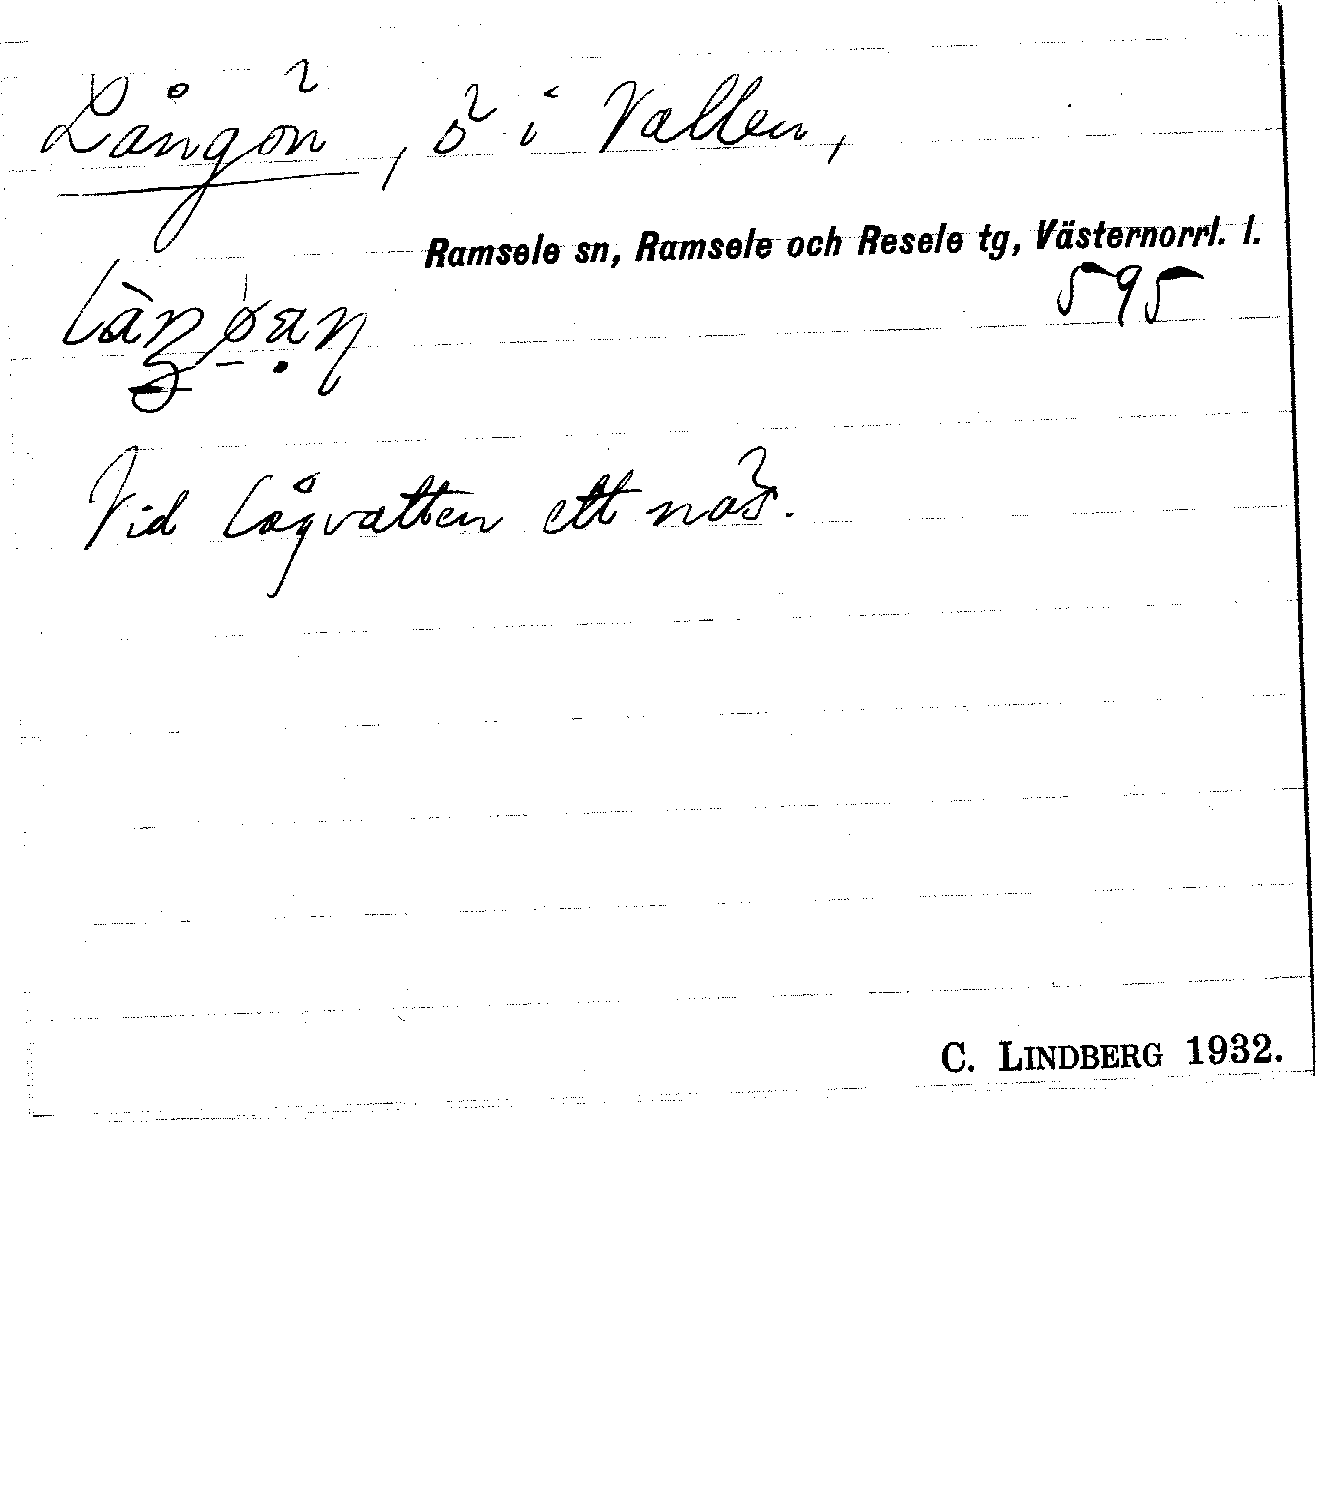 Långön, ö i Vallen,
Ramsele sn, Ramsele och Resele tg, Västernorrl. l.
595
Vid lågvatten ett näs.
C. LINDBERG 1932.